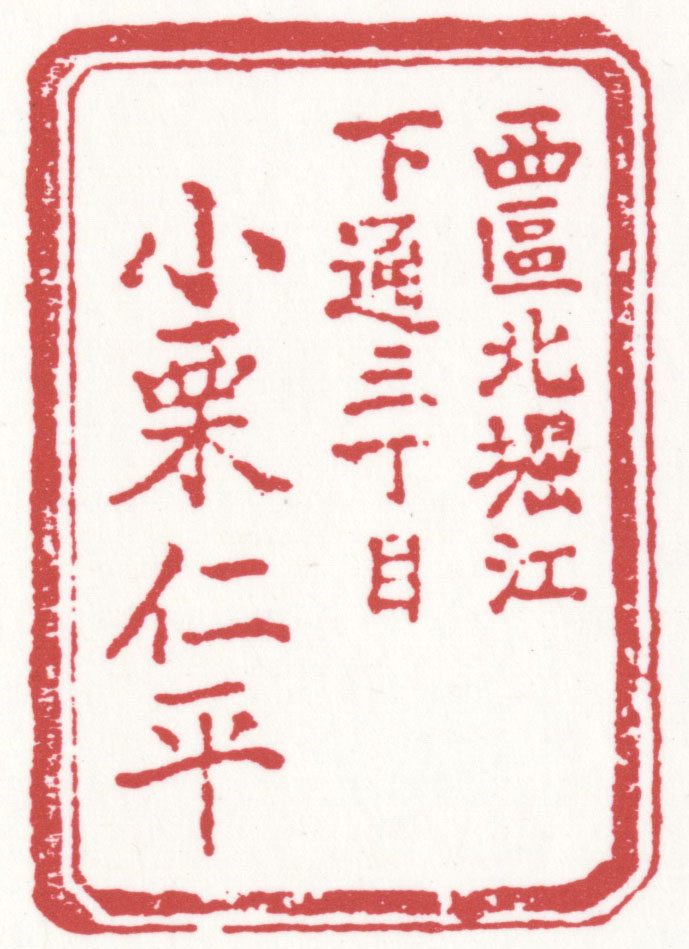 西區北堀江
下通三丁目
小栗仁平